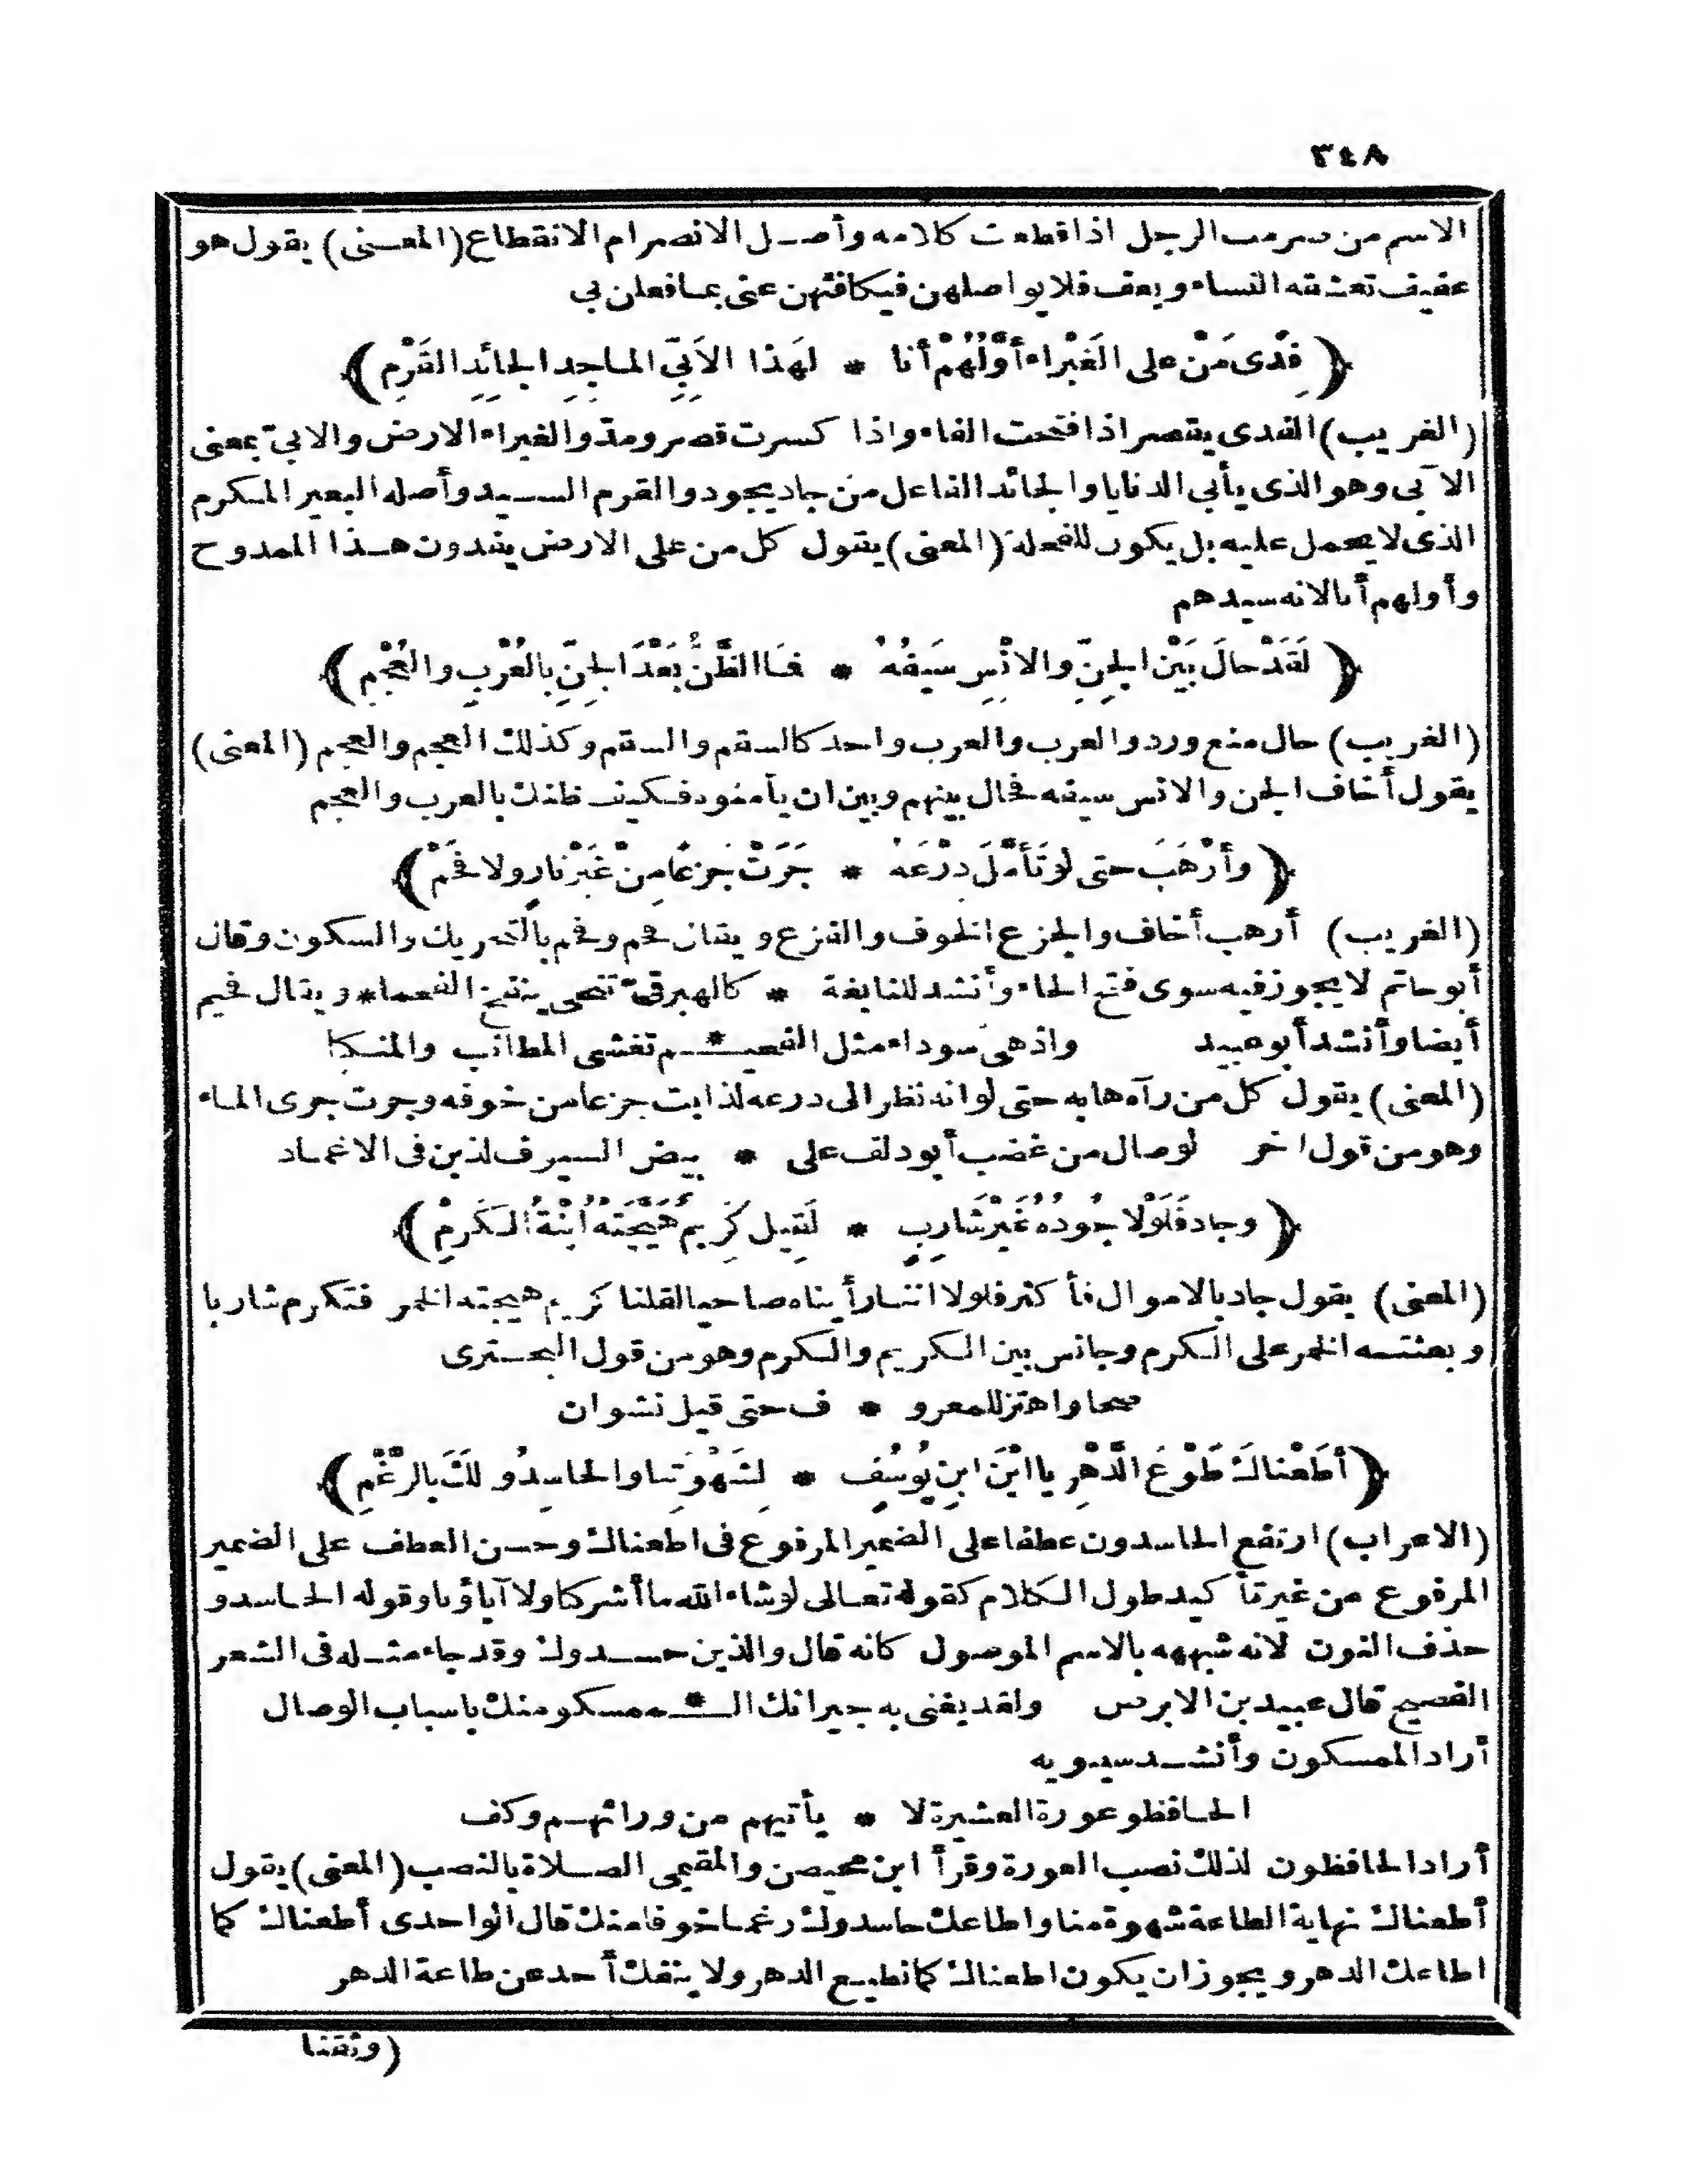 ٣٤٨
الاسم من صرمت الرجل اذا قطعت كلامه وأصل الانصرام الانقطاع (المعنى) يقول هو
عفيف تعشقه النساء ويعف فلا يواصلهن فيكافئهن عنى بما فعلن بى
﴿ فِدًى مَنْ على الغَبْراء أَوَّلُهُمْ أنا * لهَذا الأَبِيِّ الماجِدِ الجائِدِ القَرْمِ ﴾
(الغريب) الفدى يقصر اذا فتحت الفاء واذا كسرت قصر ومدّ والغبراء الارض والابىّ بمعنى
الآبى وهو الذى يأبى الدنايا والجائد الفاعل من جاد يجود والقرم السيد وأصله البعير المكرم
الذى لا يحمل عليه بل يكون للفحلة (المعنى) يقول كل من على الارض يفدون هذا الممدوح
وأولهم أنا لانه سيدهم
﴿ لَقَدْ حالَ بَيْنَ الجِنِّ والانْسِ سَيْفُهُ * فَما الظَّنُّ بَعْدَ الجِنِّ بالعُرْبِ والعُجْمِ ﴾
(الغريب) حال منع ورد والعرب والعرب واحد كالسقم والسقم وكذلك العجم والعجم (المعنى)
يقول أخاف الجن والانس سيفه فحال بينهم وبين ان يأمنوه فكيف ظنك بالعرب والعجم
﴿ وأرْهَبَ حتى لوْ تَأَمَّلَ دِرْعَهُ * جَرَتْ جَزَعًا مِنْ غَيْرِ نارٍ ولا فَحْمْ ﴾
(الغريب) أرهب أخاف والجزع الخوف والفزع ويقال فحم وفحم بالتحريك والسكون وقال
أبو حاتم لا يجوز فيه سوى فتح الحاء وأنشد للنابغة * كالهبرقىّ تنحى ينفخ الفحما * ويقال فحيم
أيضا وأنشد أبو عبيد واذ هى سوداء مثل الفحيـ * ـم تغشى المطانب والمنكبا
(المعنى) يقول كل من رآه هابه حتى لو انه نظر الى درعه لذابت جزعا من خوفه وجرت جرى الماء
وهو من قول اخر لو صال من غضب أبو دلف على * بيض السيوف لذبن فى الاغماد
﴿ وجاد فَلَوْلا جُودُهُ غَيْرَ شارِبٍ * لَقِيلَ كَرِيمٌ هَيَّجَتْهُ ابْنَةُ الكَرْمِ ﴾
(المعنى) يقول جاد بالاموال فأكثر فلولا اننا رأيناه صاحيا لقلنا كريم هيجته الخمر فتكرم شاربا
وبعثته الخمر على الكرم وجانس بين الكريم والكرم وهو من قول البحترى
صحا واهتز للمعرو * ف حتى قيل نشوان
﴿ أطَعْناكَ طَوْعَ الدَّهْرِ يا ابْنَ ابنِ يُوسُفٍ * لِشَهْوَتِنا والحاسِدُو لكَ بالرَّغْمِ ﴾
(الاعراب) ارتفع الحاسدون عطفا على الضمير المرفوع فى اطعناك وحسن العطف على الضمير
المرفوع من غير تأكيد طول الكلام كقوله تعالى لو شاء الله ما أشركنا ولا آباؤنا وقوله الحاسدو
حذف النون لانه شبهه بالاسم الموصول كانه قال والذين حسدوك وقد جاء مثله فى الشعر
الفصيح قال عبيد بن الابرص ولقد يغنى به جيرانك الـ * ـممسكو منك باسباب الوصال
أراد الممسكون وأنشد سيبويه
الحافظو عورة العشيرة لا * يأتيهم من ورائهم وكف
أراد الحافظون لذلك نصب العورة وقرأ ابن محيصن والمقيمى الصلاة بالنصب (المعنى) يقول
أطعناك نهاية الطاعة شهوة منا واطاعك حاسدوك رغما خوفا منك قال الواحدى أطعناك كما
اطاعك الدهر ويجوز ان يكون اطعناك كما نطيع الدهر ولا ينفك أحد عن طاعة الدهر
(وثقنا